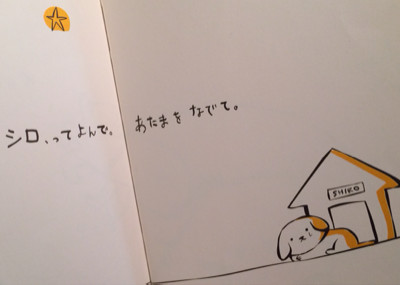 シロ、ってよんで。 あたまを なでて。
SHIRO